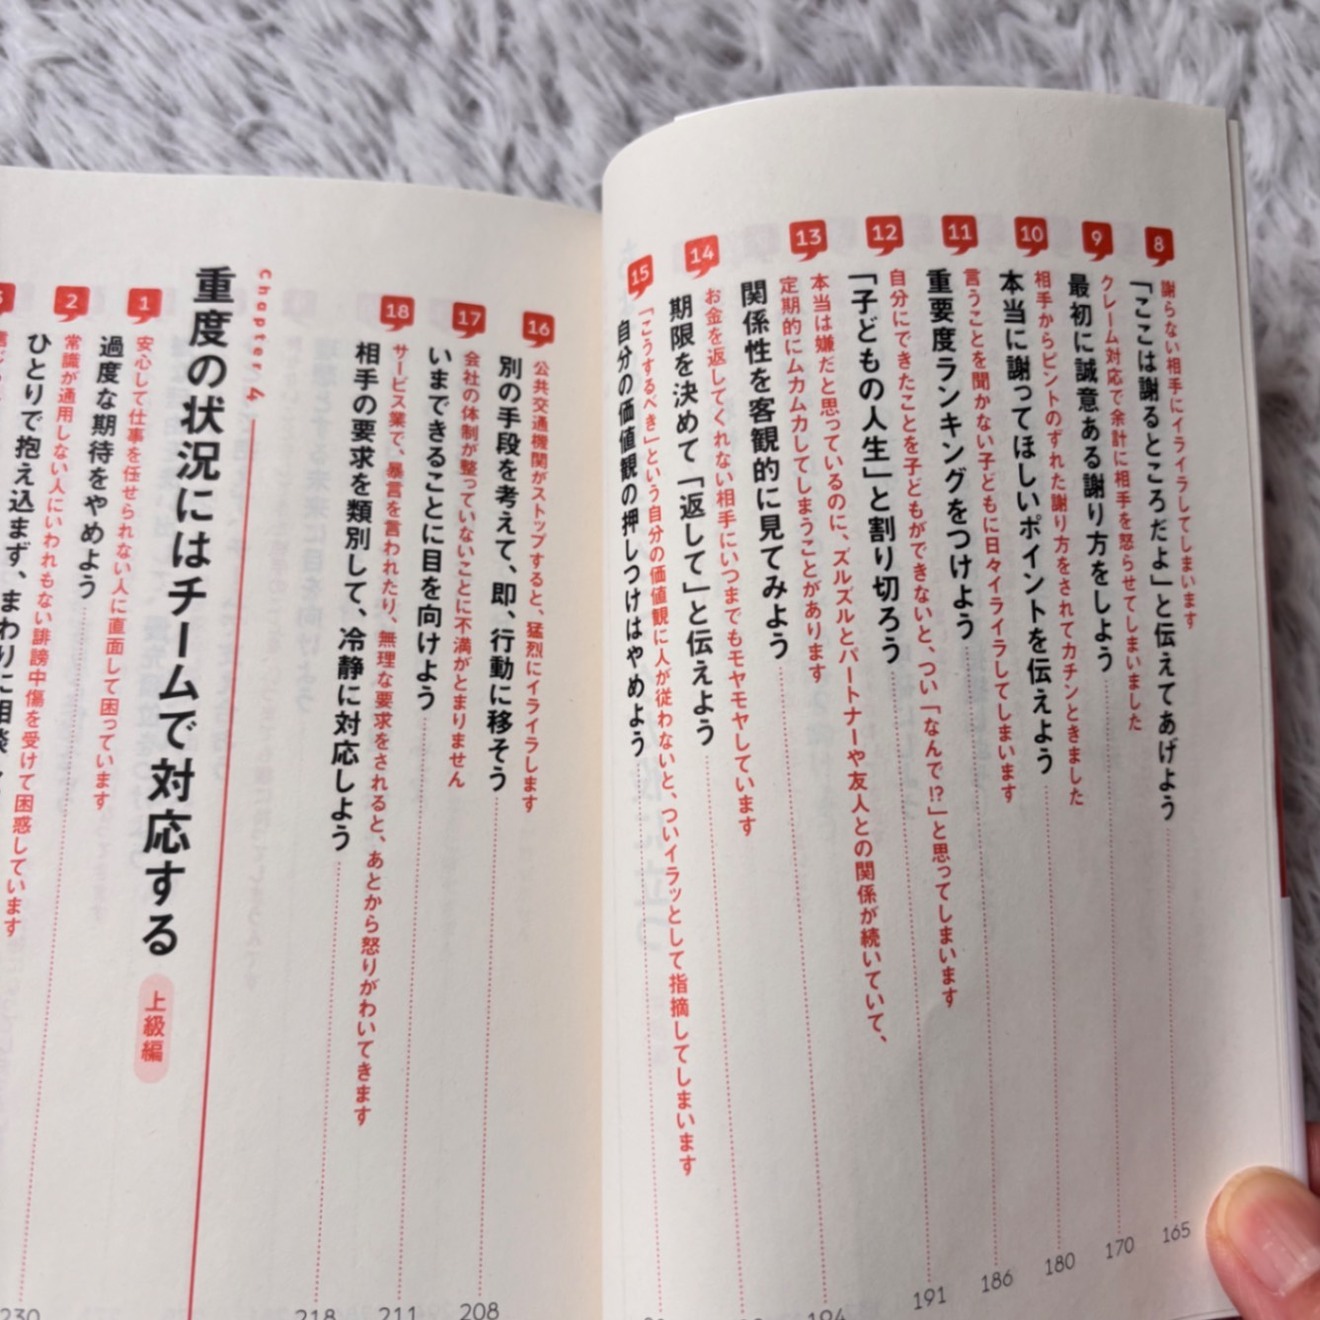 8
謝らない相手にイライラしてしまいます
「ここは謝るところだよ」と伝えてあげよう
165
9
クレーム対応で余計に相手を怒らせてしまいました
最初に誠意ある謝り方をしよう
170
10
相手からピントのずれた謝り方をされてカチンときました
本当に謝ってほしいポイントを伝えよう
180
11
言うことを聞かない子どもに日々イライラしてしまいます
重要度ランキングをつけよう
186
12
自分にできたことを子どもができないと、つい「なんで!?」と思ってしまいます
「子どもの人生」と割り切ろう
191
13
本当は嫌だと思っているのに、ズルズルとパートナーや友人との関係が続いていて、
定期的にムカムカしてしまうことがあります
関係性を客観的に見てみよう
194
14
お金を返してくれない相手にいつまでもモヤモヤしています
期限を決めて「返して」と伝えよう
15
「こうするべき」という自分の価値観に人が従わないと、ついイラッとして指摘してしまいます
自分の価値観の押しつけはやめよう
16
公共交通機関がストップすると、猛烈にイライラします
別の手段を考えて、即、行動に移そう
208
17
会社の体制が整っていないことに不満がとまりません
いまできることに目を向けよう
211
18
サービス業で、暴言を言われたり、無理な要求をされると、あとから怒りがわいてきます
相手の要求を類別して、冷静に対応しよう
218
chapter 4
重度の状況にはチームで対応する 上級編
1
安心して仕事を任せられない人に直面して困っています
過度な期待をやめよう
2
常識が通用しない人にいわれもない誹謗中傷を受けて困惑しています
ひとりで抱え込まず、まわりに相談
230